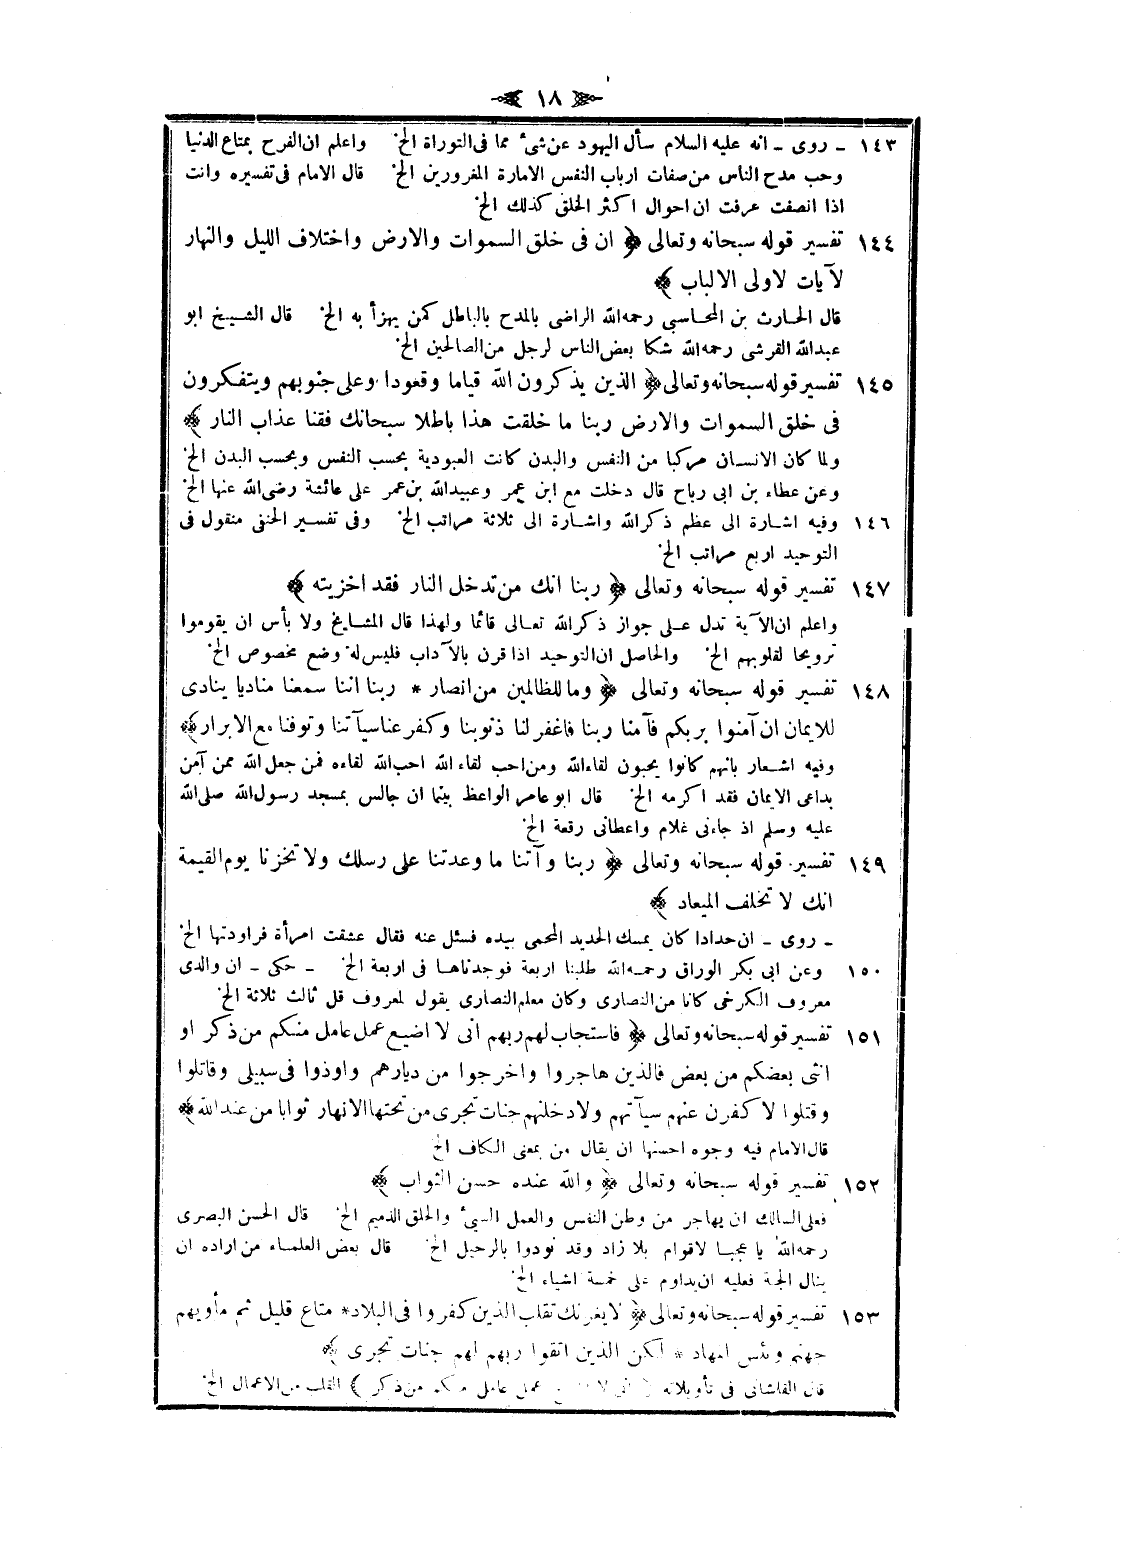 ١٨
١٤٣ ـ روى ـ انه عليه السلام سأل اليهود عن شئ مما فى التوراة الخ واعلم ان الفرح بمتاع الدنيا
وحب مدح الناس من صفات ارباب النفس الامارة المغرورين الخ قال الامام فى تفسيره وانت
اذا انصفت عرفت ان احوال اكثر الخلق كذلك الخ
١٤٤ تفسير قوله سبحانه وتعالى ﴿ ان فى خلق السموات والارض واختلاف الليل والنهار
لآيات لاولى الالباب ﴾
قال الحارث بن المحاسبى رحمه الله الراضى بالمدح بالباطل كمن يهزأ به الخ قال الشيخ ابو
عبدالله القرشى رحمه الله شكا بعض الناس لرجل من الصالحين الخ
١٤٥ تفسير قوله سبحانه وتعالى ﴿ الذين يذكرون الله قياما وقعودا وعلى جنوبهم ويتفكرون
فى خلق السموات والارض ربنا ما خلقت هذا باطلا سبحانك فقنا عذاب النار ﴾
ولما كان الانسان مركبا من النفس والبدن كانت العبودية بحسب النفس وبحسب البدن الخ
وعن عطاء بن ابى رباح قال دخلت مع ابن عمر وعبيدالله بن عمر على عائشة رضى الله عنها الخ
١٤٦ وفيه اشارة الى عظم ذكر الله واشارة الى ثلاثة مراتب الخ وفى تفسير الحنفى منقول فى
التوحيد اربع مراتب الخ
١٤٧ تفسير قوله سبحانه وتعالى ﴿ ربنا انك من تدخل النار فقد اخزيته ﴾
واعلم ان الآية تدل على جواز ذكر الله تعالى قائما ولهذا قال المشايخ ولا بأس ان يقوموا
ترويحا لقلوبهم الخ والحاصل ان التوحيد اذا قرن بالآداب فليس له وضع مخصوص الخ
١٤٨ تفسير قوله سبحانه وتعالى ﴿ وما للظالمين من انصار * ربنا اننا سمعنا مناديا ينادى
للايمان ان آمنوا بربكم فآمنا ربنا فاغفر لنا ذنوبنا وكفر عنا سيآتنا وتوفنا مع الابرار ﴾
وفيه اشعار بانهم كانوا يحبون لقاء الله ومن احب لقاء الله احب الله لقاءه فمن جعل الله ممن آمن
بداعى الايمان فقد اكرمه الخ قال ابو عامر الواعظ بينما ان جالس بمسجد رسول الله صلى الله
عليه وسلم اذ جاءنى غلام واعطانى رقعة الخ
١٤٩ تفسير قوله سبحانه وتعالى ﴿ ربنا وآتنا ما وعدتنا على رسلك ولا تخزنا يوم القيمة
انك لا تخلف الميعاد ﴾
ـ روى ـ ان حدادا كان يمسك الحديد المحمى بيده فسئل عنه فقال عشقت امرأة فراودتها الخ
١٥٠ وعن ابى بكر الوراق رحمه الله طلبنا اربعة فوجدناها فى اربعة الخ ـ حكى ـ ان والدى
معروف الكرخى كانا من النصارى وكان معلم النصارى يقول لمعروف قل ثالث ثلاثة الخ
١٥١ تفسير قوله سبحانه وتعالى ﴿ فاستجاب لهم ربهم انى لا اضيع عمل عامل منكم من ذكر او
انثى بعضكم من بعض فالذين هاجروا واخرجوا من ديارهم واوذوا فى سبيلى وقاتلوا
وقتلوا لاكفرن عنهم سيآتهم ولادخلنهم جنات تجرى من تحتها الانهار ثوابا من عند الله ﴾
قال الامام فيه وجوه احسنها ان يقال من بمعنى الكاف الخ
١٥٢ تفسير قوله سبحانه وتعالى ﴿ والله عنده حسن الثواب ﴾
فعلى السالك ان يهاجر من وطن النفس والعمل السيئ والخلق الذميم الخ قال الحسن البصرى
رحمه الله يا عجبا لاقوام بلا زاد وقد نودوا بالرحيل الخ قال بعض العلماء من اراده ان
ينال الجنة فعليه ان يداوم على خمسة اشياء الخ
١٥٣ تفسير قوله سبحانه وتعالى ﴿ لا يغرنك تقلب الذين كفروا فى البلاد * متاع قليل ثم مأويهم
جهنم وبئس المهاد * لكن الذين اتقوا ربهم لهم جنات تجرى ﴾
قال القاشانى فى تأويلاته ﴿ انى لا اضيع عمل عامل منكم من ذكر ﴾ القلب من الاعمال الخ